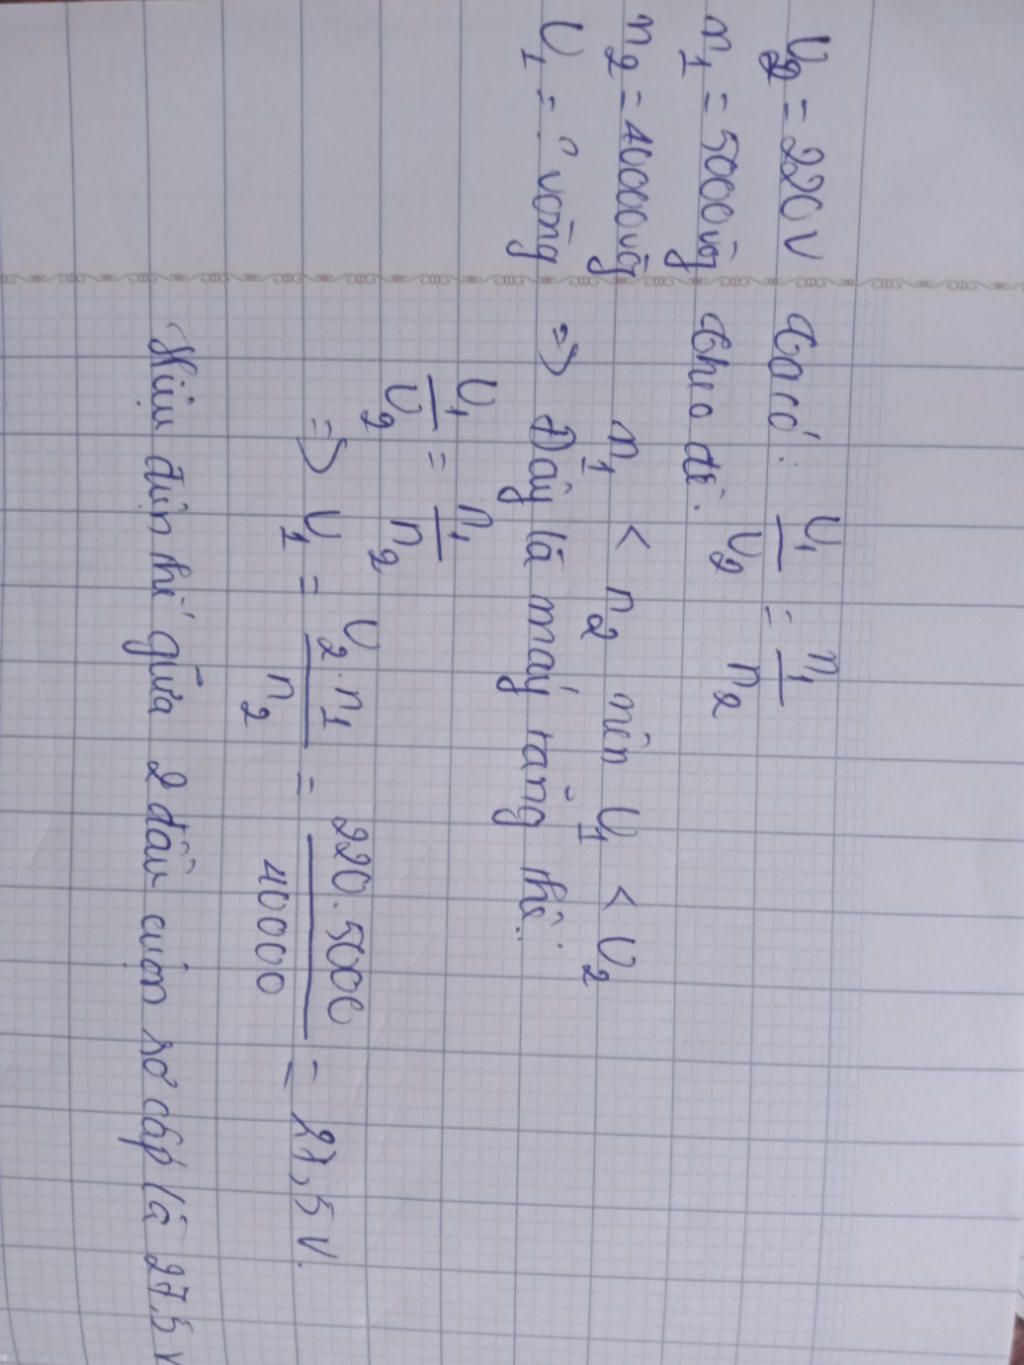 U₂ = 220 V
n₁ = 5000 vòng
n₂ = 40000 vòng
U₁ = ? vòng
Ta có: U₁/U₂ = n₁/n₂
Theo đề:
n₁ < n₂ nên U₁ < U₂
=> Đây là máy tăng thế.
U₁/U₂ = n₁/n₂
=> U₁ = U₂.n₁/n₂ = 220.5000/40000 = 27,5 V.
Hiệu điện thế giữa 2 đầu cuộn sơ cấp là 27,5 V